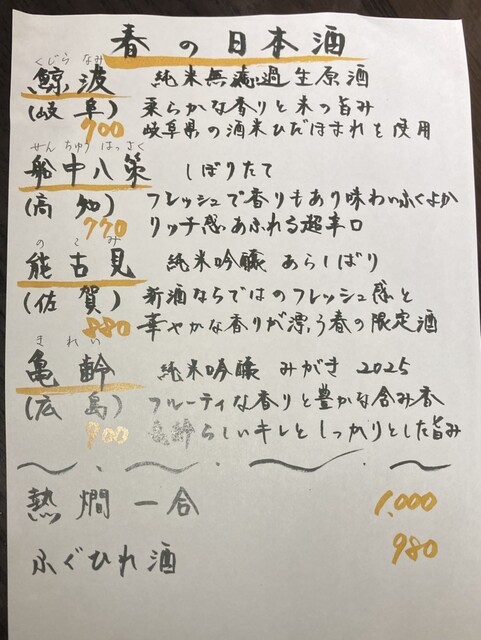 春の日本酒
くじら なみ
鯨波 純米無濾過生原酒
(岐阜) 柔らかな香りと米の旨み
700 岐阜県の酒米ひだほまれを使用
せんちゅう はっさく
船中八策 しぼりたて
(高知) フレッシュで香りもあり味わいふくよか
770 リッチ感あふれる超辛口
のごみ
能古見 純米吟醸 あらしばり
(佐賀) 新酒ならではのフレッシュ感と
880 華やかな香りが漂う春の限定酒
きれい
亀齢 純米吟醸 みがき 2025
(広島) フルーティな香りと豊かな含み香
900 亀齢らしいキレとしっかりとした旨み
熱燗 一合 1,000
ふぐひれ酒 980